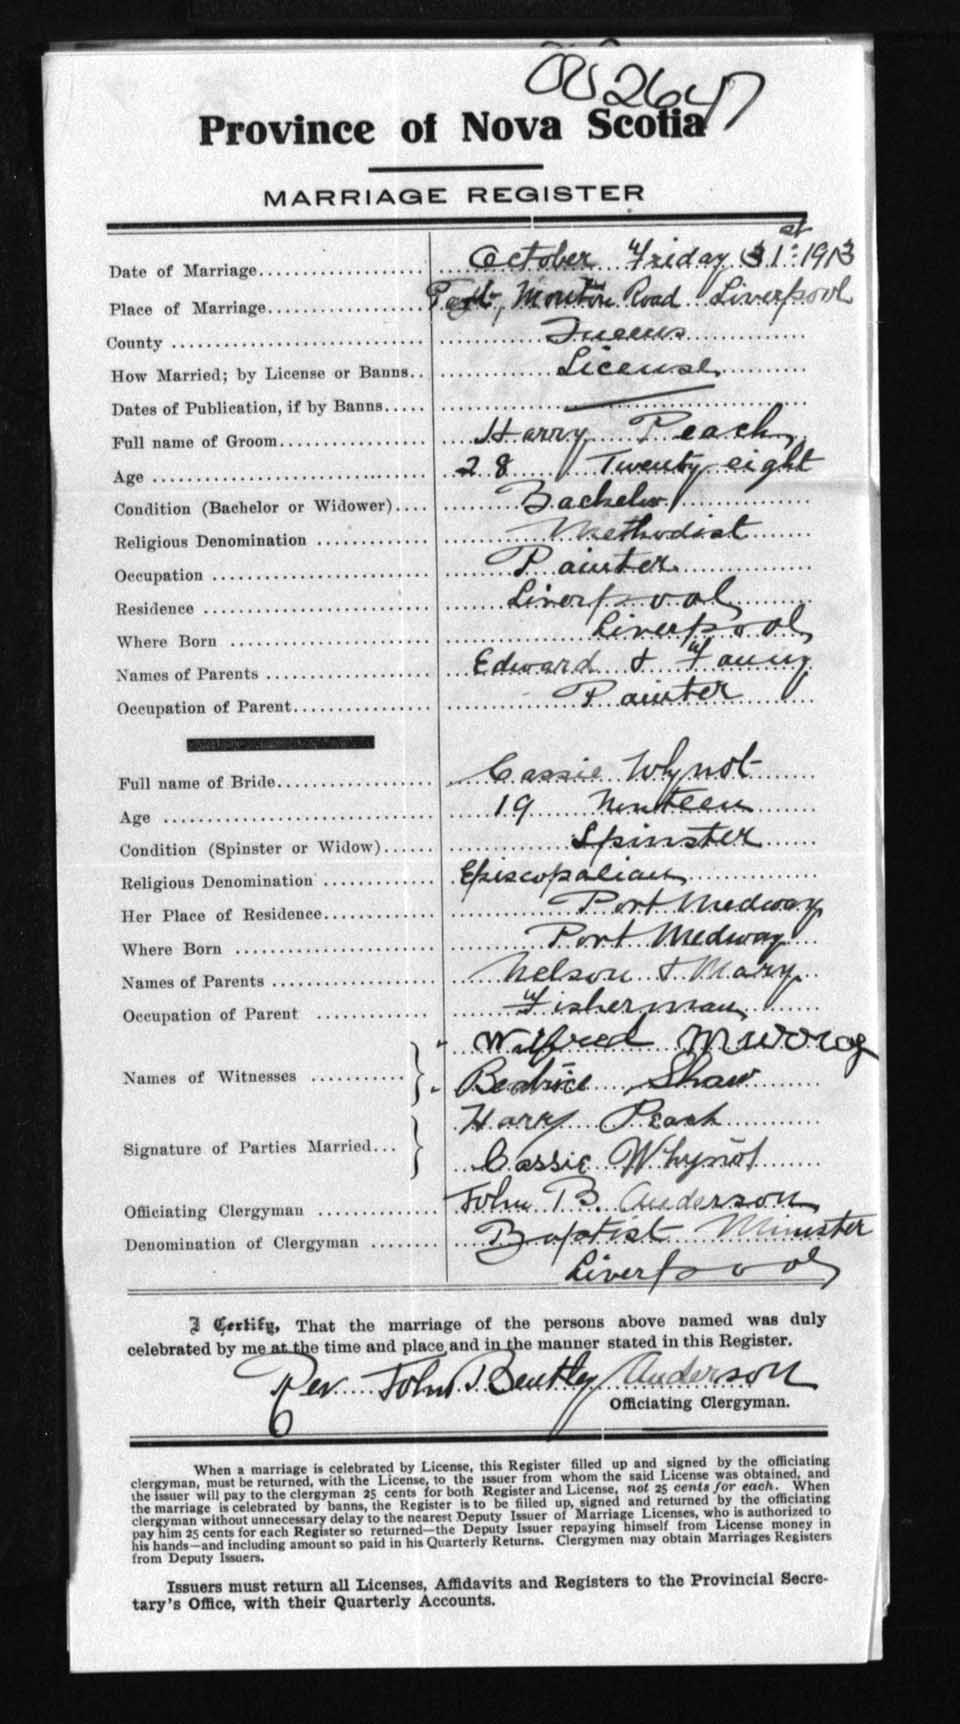 002647
Province of Nova Scotia
MARRIAGE REGISTER
Date of Marriage October Friday 31st 1913
Place of Marriage Port Mouton Road Liverpool
County Queens
How Married; by License or Banns License
Dates of Publication, if by Banns
Full name of Groom Harry Peach
Age 28 Twenty eight
Condition (Bachelor or Widower) Bachelor
Religious Denomination Methodist
Occupation Painter
Residence Liverpool
Where Born Liverpool
Names of Parents Edward & Fanny
Occupation of Parent Painter
Full name of Bride Cassie Whynot
Age 19 Nineteen
Condition (Spinster or Widow) Spinster
Religious Denomination Episcopalian
Her Place of Residence Port Medway
Where Born Port Medway
Names of Parents Nelson & Mary
Occupation of Parent Fisherman
Wilfred Murray
Names of Witnesses
Beatrice Shaw
Harry Peach
Signature of Parties Married
Cassie Whynot
Officiating Clergyman John B. Anderson
Denomination of Clergyman Baptist Minister
Liverpool
I Certify, That the marriage of the persons above named was duly
celebrated by me at the time and place and in the manner stated in this Register.
Rev. John Bentley Anderson
Officiating Clergyman.
When a marriage is celebrated by License, this Register filled up and signed by the officiating
clergyman, must be returned, with the License, to the issuer from whom the said License was obtained, and
the issuer will pay to the clergyman 25 cents for both Register and License, not 25 cents for each. When
the marriage is celebrated by banns, the Register is to be filled up, signed and returned by the officiating
clergyman without unnecessary delay to the nearest Deputy Issuer of Marriage Licenses, who is authorized to
pay him 25 cents for each Register so returned—the Deputy Issuer repaying himself from License money in
his hands—and including amount so paid in his Quarterly Returns. Clergymen may obtain Marriages Registers
from Deputy Issuers.
Issuers must return all Licenses, Affidavits and Registers to the Provincial Secre-
tary's Office, with their Quarterly Accounts.